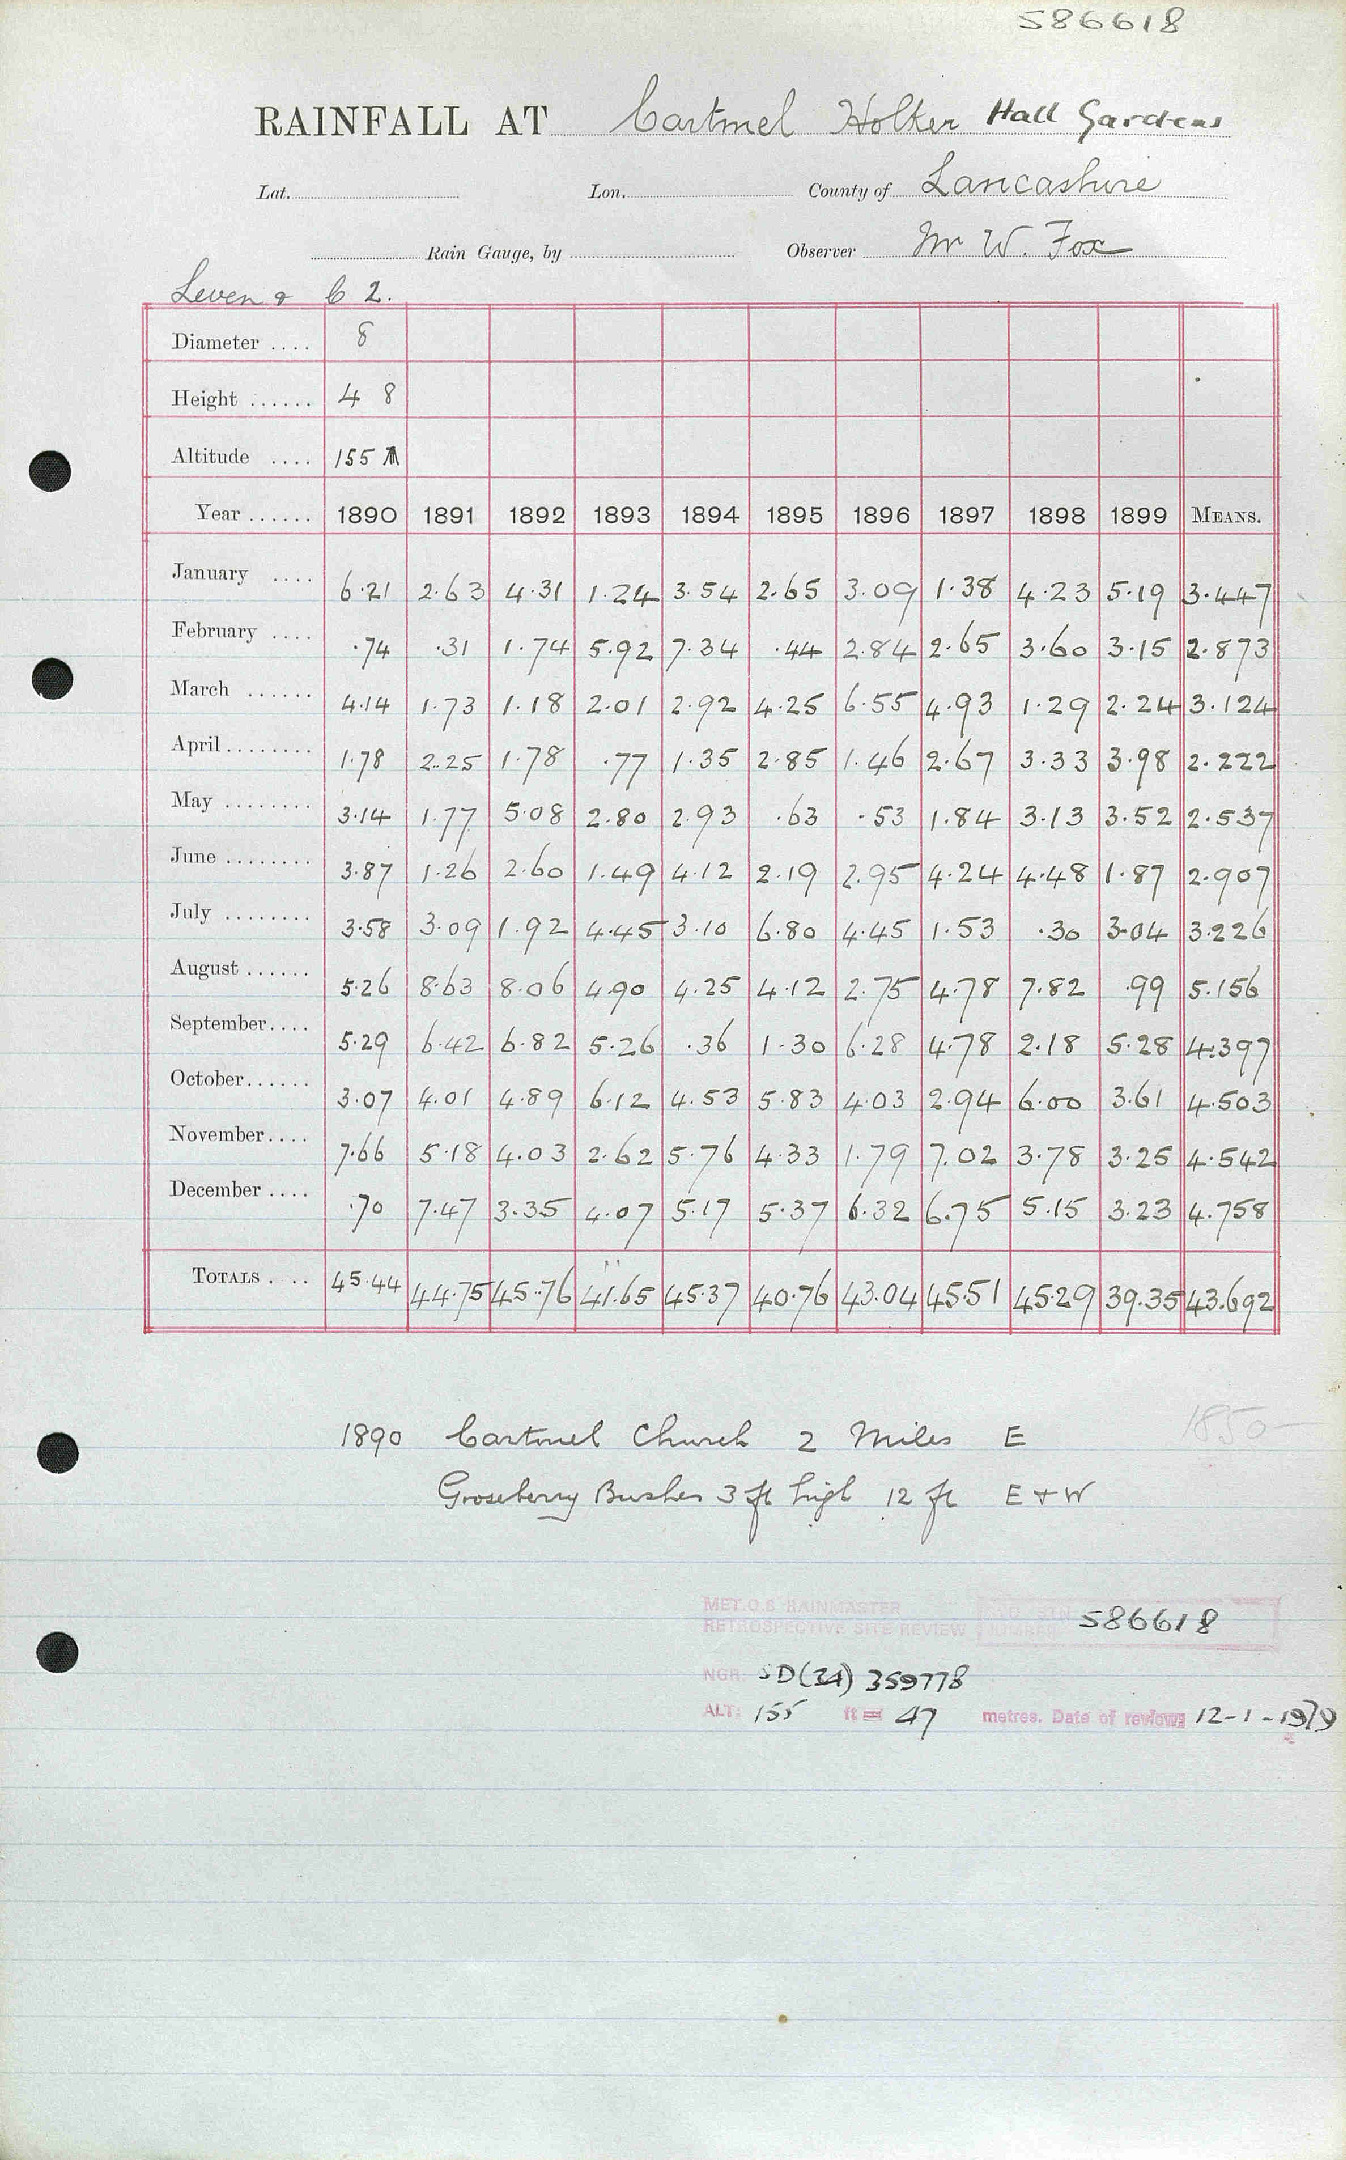 586618
RAINFALL AT Cartmel Holker Hall Gardens
Lat. Lon. County of Lancashire
Rain Gauge, by Observer Mr W. Fox
Leven & C 2.
Diameter .... 8
Height ...... 4 8
Altitude .... 155
Year ...... 1890 1891 1892 1893 1894 1895 1896 1897 1898 1899 MEANS.
January .... 6.21 2.63 4.31 1.24 3.54 2.65 3.09 1.38 4.23 5.19 3.447
February .... .74 .31 1.74 5.92 7.34 .44 2.84 2.65 3.60 3.15 2.873
March ...... 4.14 1.73 1.18 2.01 2.92 4.25 6.55 4.93 1.29 2.24 3.124
April ........ 1.78 2.25 1.78 .77 1.35 2.85 1.46 2.67 3.33 3.98 2.222
May ........ 3.14 1.77 5.08 2.80 2.93 .63 .53 1.84 3.13 3.52 2.537
June ........ 3.87 1.26 2.60 1.49 4.12 2.19 2.95 4.24 4.48 1.87 2.907
July ........ 3.58 3.09 1.92 4.45 3.10 6.80 4.45 1.53 .30 3.04 3.226
August ...... 5.26 8.63 8.06 4.90 4.25 4.12 2.75 4.78 7.82 .99 5.156
September.... 5.29 6.42 6.82 5.26 .36 1.30 6.28 4.78 2.18 5.28 4.397
October...... 3.07 4.01 4.89 6.12 4.53 5.83 4.03 2.94 6.00 3.61 4.503
November.... 7.66 5.18 4.03 2.62 5.76 4.33 1.79 7.02 3.78 3.25 4.542
December .... .70 7.47 3.35 4.07 5.17 5.37 6.32 6.75 5.15 3.23 4.758
TOTALS .... 45.44 44.75 45.76 41.65 45.37 40.76 43.04 45.51 45.29 39.35 43.692
1890 Cartmel Church 2 Miles E
1850-
Gooseberry Bushes 3 ft high 12 ft E + W
MET.O.8 RAINMASTER
RETROSPECTIVE SITE REVIEW STN NUMBER 586618
NGR: SD(34) 359778
ALT: 155 ft = 47 metres. Date of review: 12-1-1979